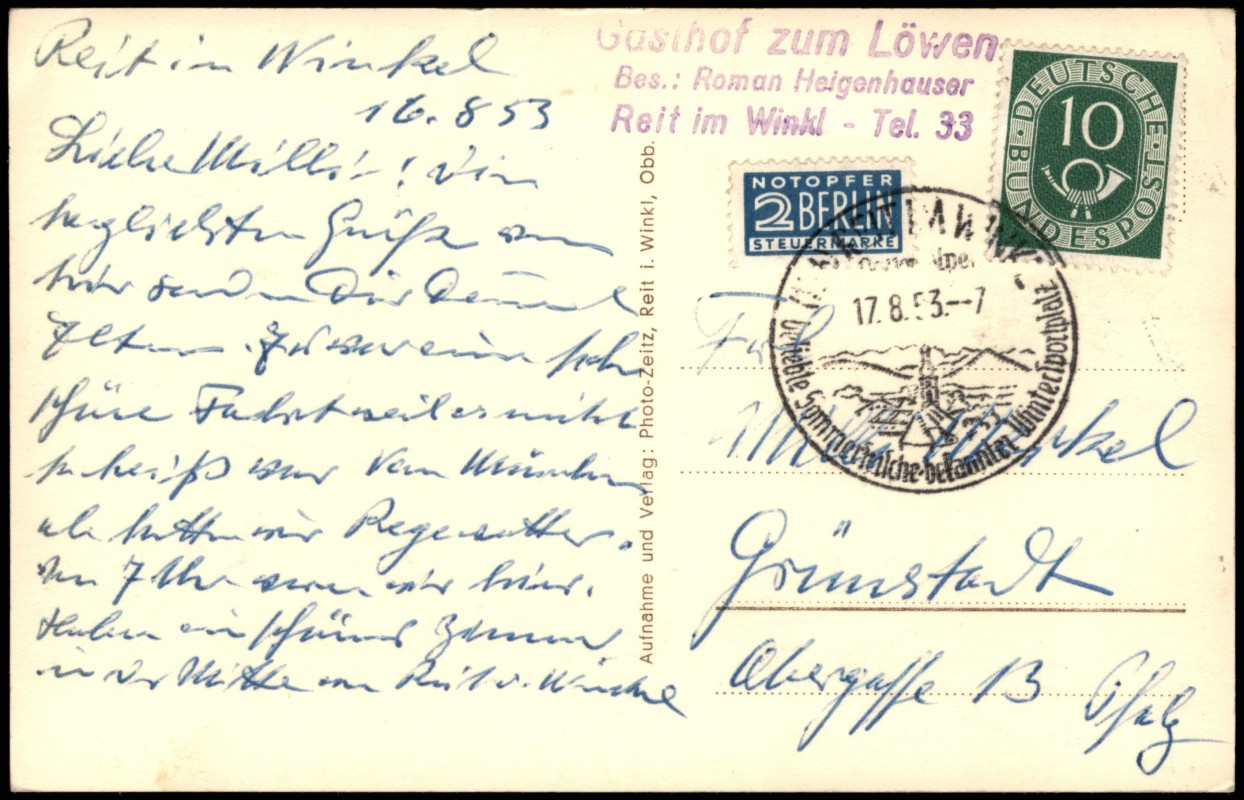 Reit im Winkel
16.8 53
Liebe Milli! Die
herzlichsten Grüße von
hier senden Dir Deine
Eltern. Es war eine sehr
schöne Fahrt weil es nicht
so heiß war von München
ab hatten wir Regenwetter.
Um 7 Uhr waren wir hier.
Haben ein schönes Zimmer
in der Mitte von Reit i. Winkel
Aufnahme und Verlag: Photo-Zeitz, Reit i. Winkl, Obb.
Gasthof zum Löwen
Bes.: Roman Heigenhauser
Reit im Winkl - Tel. 33
DEUTSCHE BUNDESPOST
10
NOTOPFER
2 BERLIN
STEUERMARKE
17.8.53.--7
beliebte Sommerfrische-bekannter Wintersportplatz
Milli
Grünstadt
Obergasse 13 Pfalz